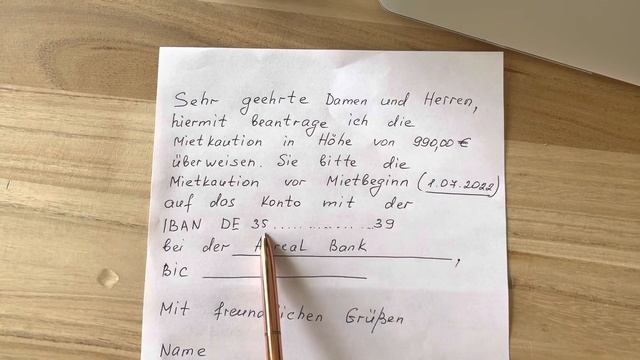 Sehr geehrte Damen und Herren,
hiermit beantrage ich die
Mietkaution in Höhe von 990,00 €
überweisen. Sie bitte die
Mietkaution vor Mietbeginn (1.07.2022)
auf das Konto mit der
IBAN DE 35..................39
bei der Areal Bank,
Bic
Mit freundlichen Grüßen
Name